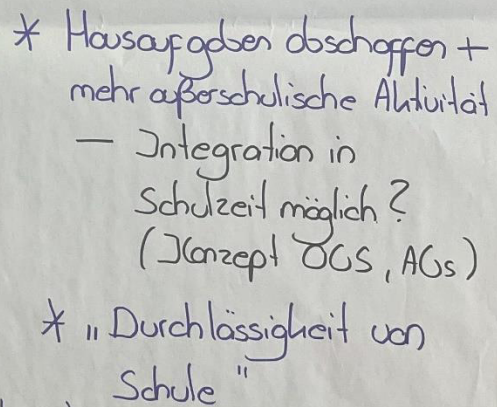 * Hausaufgaben abschaffen +
mehr außerschulische Aktivität
– Integration in
Schulzeit möglich?
(Konzept OGS, AGs)
* „Durchlässigkeit von
Schule"